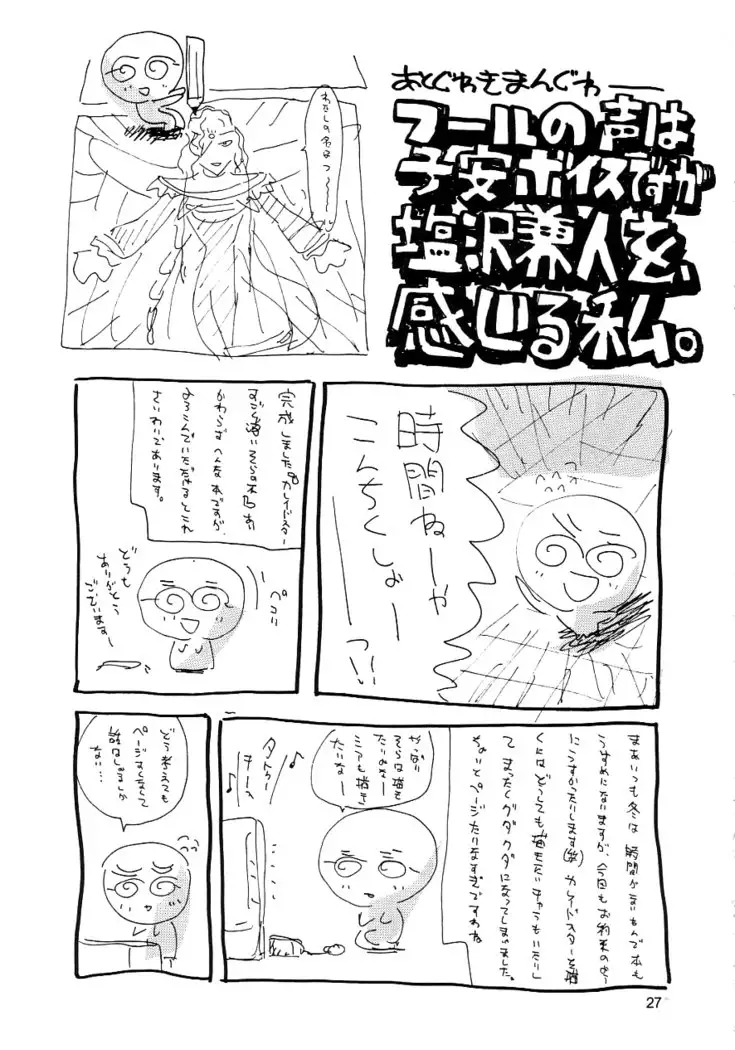 あとがきまんが
フールの声は
子安ボイスですが
塩沢兼人を、
感じる私。
わたしの名はっ～～
時間ねーや
こんちくしょー
ーっ!!
完成しましたカレイドスター
すごく薄い
かわらずへんな本ですが、
よろこんでいただけるとこれ
さいわいであります。
ペコリ
どうも
ありがとう
ございますー
まあいつも冬は時間がないもんで本も
うすめになりますが、今回もお約束のよう
にうすかったりします(笑)カレイドスターを描
くにはどうしても描きたいキャラもいたりし
て まったくグダグダになってしまいました。
ちょいとページたりなすぎですわね
やっぱり
そらは描き
たいなー
ミアも描き
たいなー
♪
♪
どう考えても
ページをましまして
話はじまるしか
ない…
27